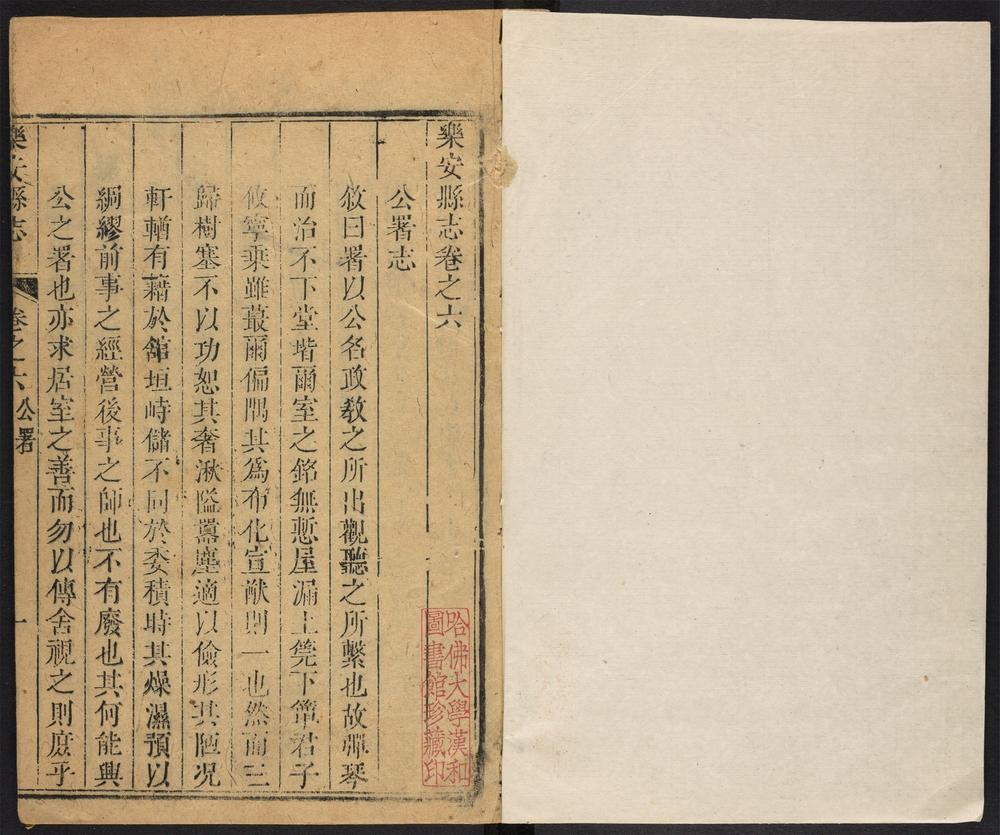 樂安縣志卷之六
公署志
敘曰署以公名政教之所出觀聽之所繫也故彈琴
而治不下堂堦爾室之銘無慙屋漏上筦下簟君子
攸寧乗雖蕞爾偏隅其爲布化宣猷則一也然而三
歸樹塞不以功恕其奢湫隘囂塵適以儉形其陋况
軒輶有藉於舘垣峙儲不同於委積時其燥濕預以
綢繆前事之經營後事之師也不有廢也其何能興
公之署也亦求居室之善而勿以傳舍視之則庶乎
樂安縣志
卷之六 公署
一
哈佛大學漢和
圖書館珍藏印